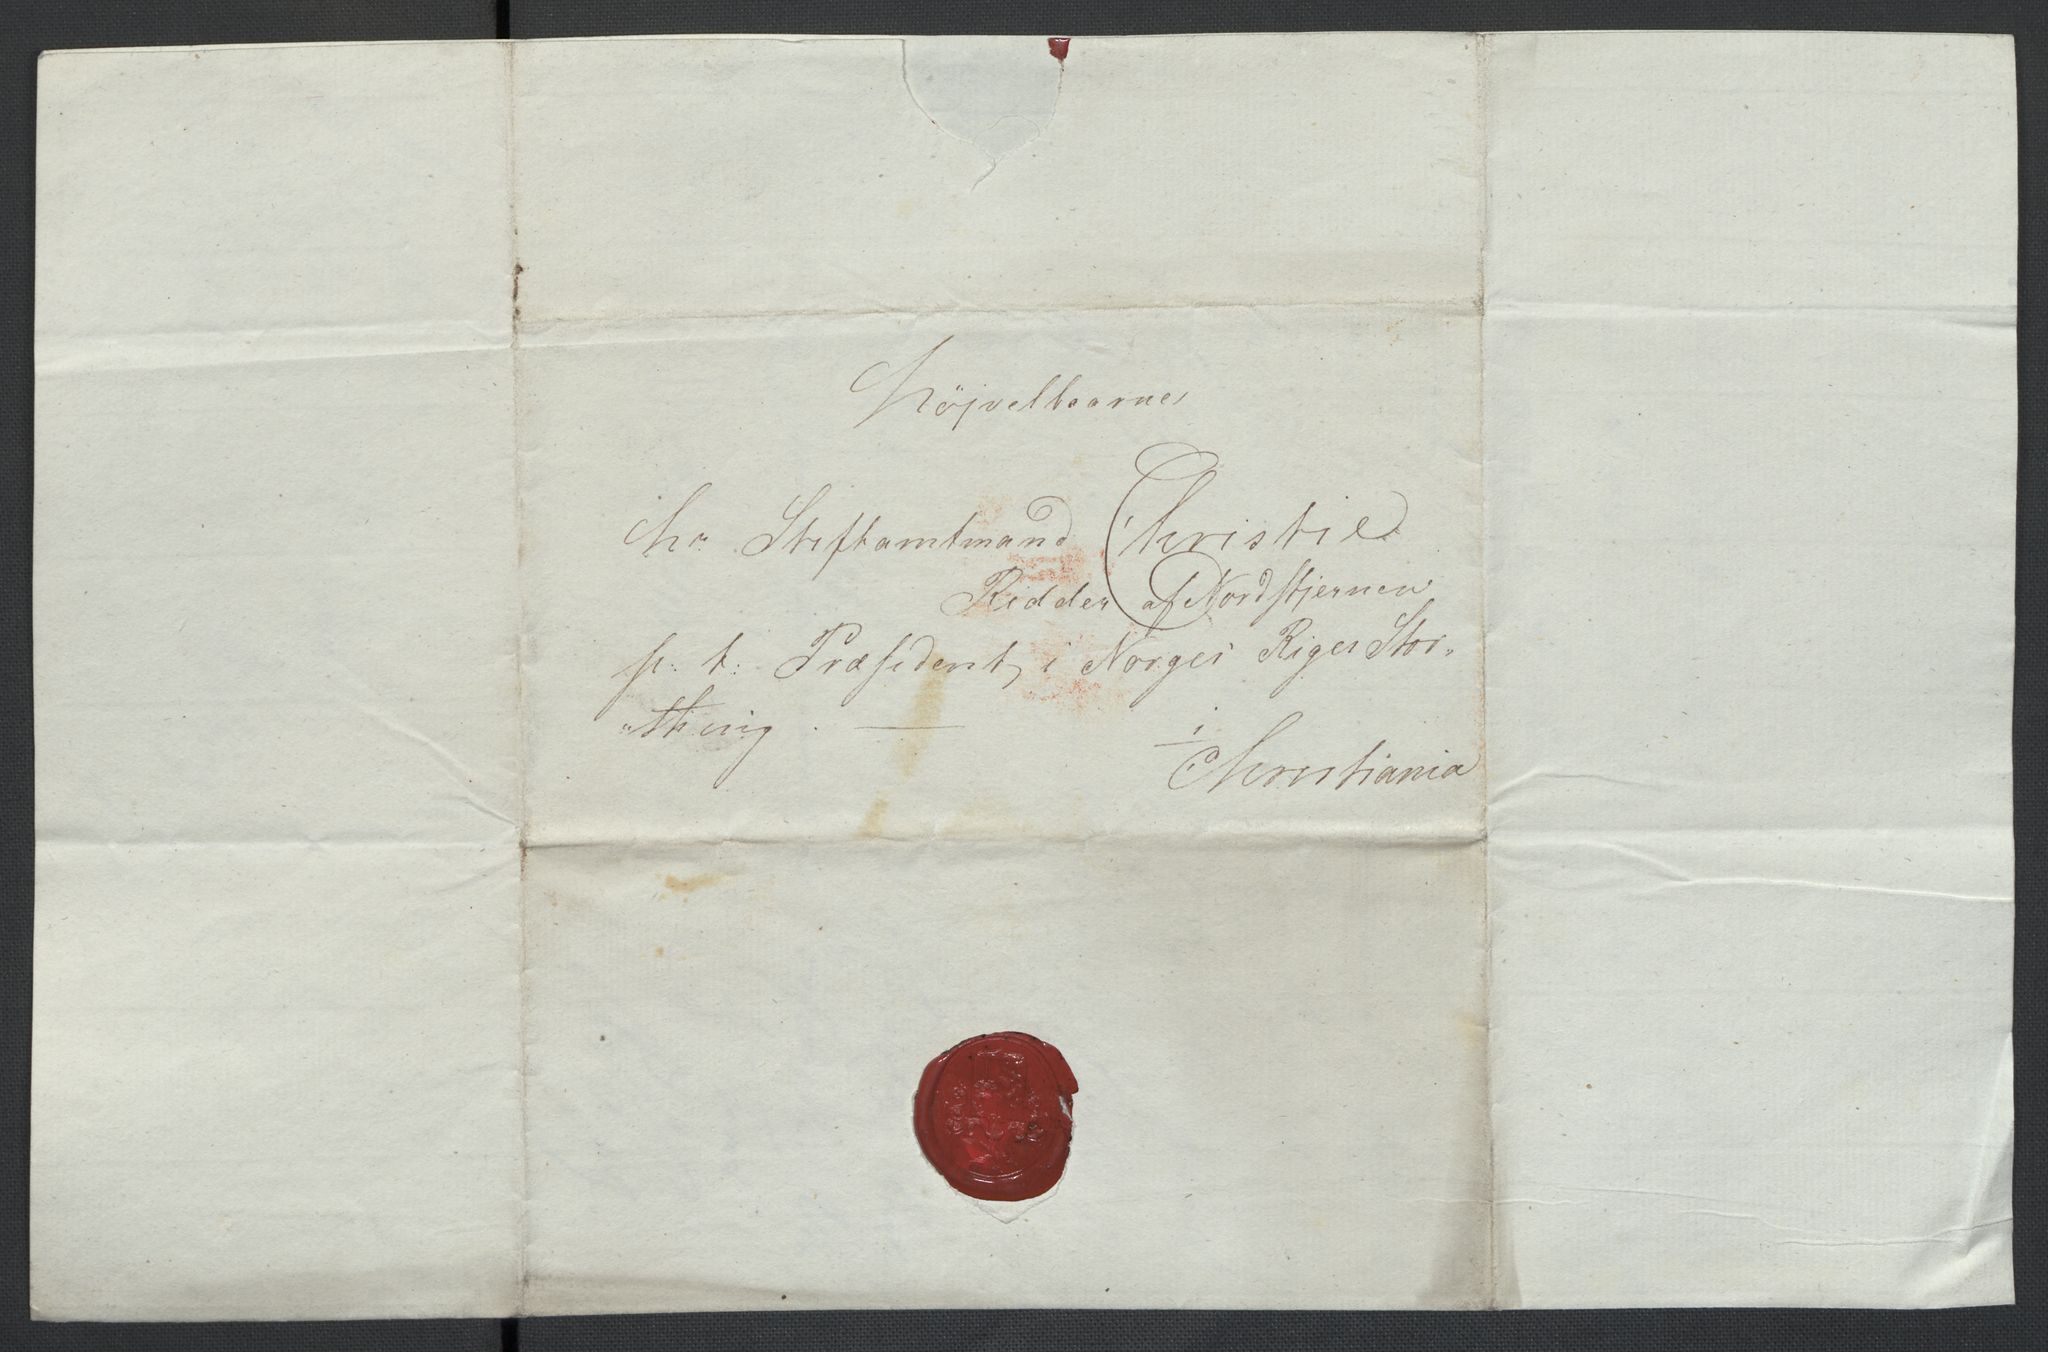 Højvelbaarne
Hr. Stiftamtmand Christie
Ridder af Nordstjernen
p: t: Præsident i Norges Riges Stor„
„thing. —
i
Christiania